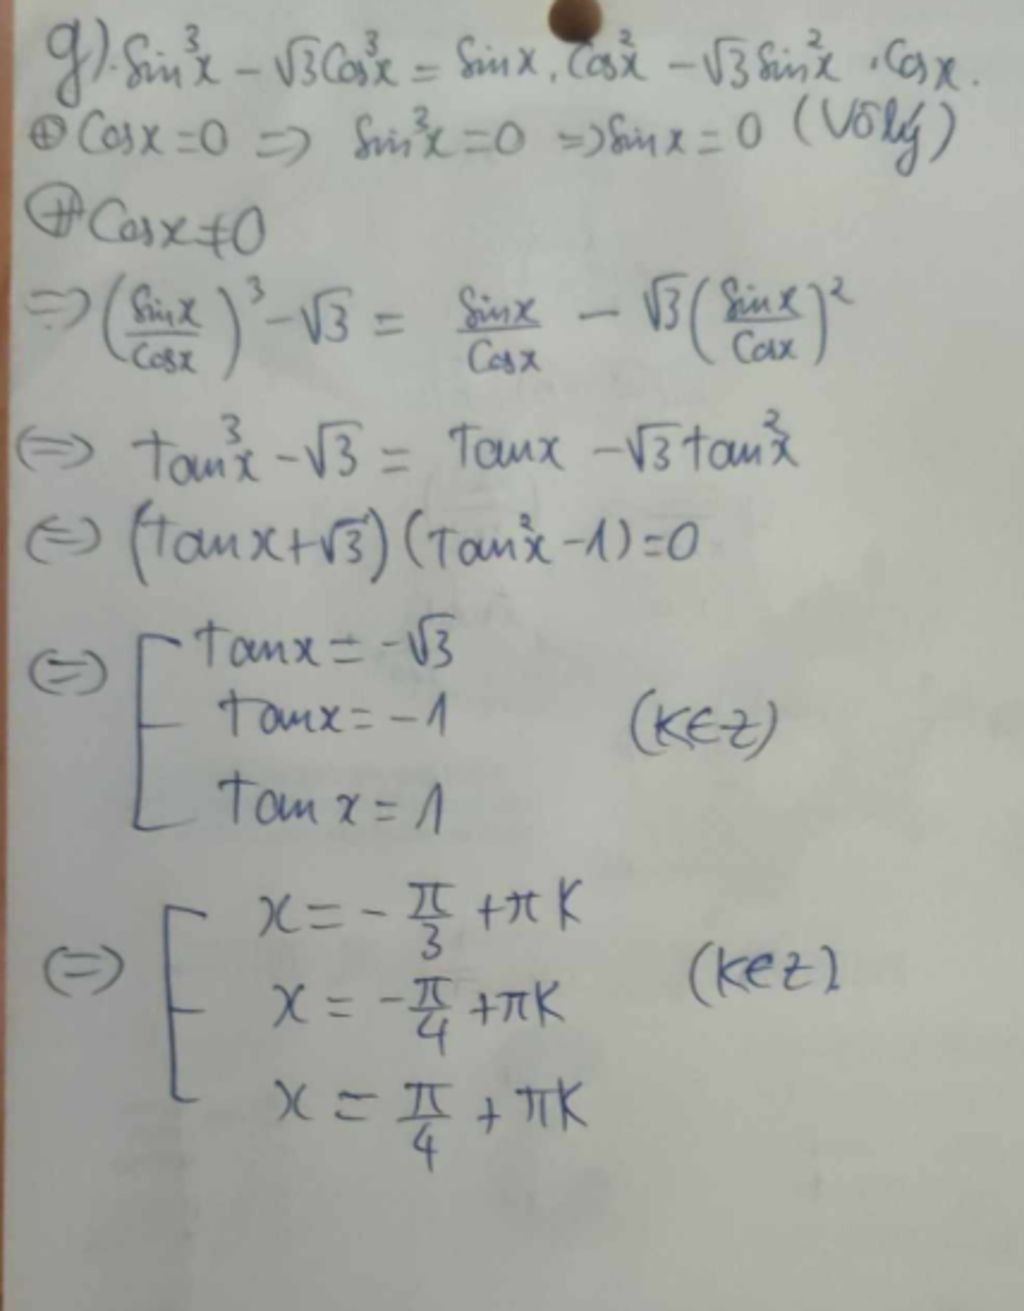 g). Sin³x − √3Cos³x = Sinx.Cos²x − √3Sin²x.Cosx.
⊕ Cosx=0 => Sin³x=0 => Sinx=0 (Vô lý)
⊕ Cosx≠0
=> (Sinx/Cosx)³ − √3 = Sinx/Cosx − √3(Sinx/Cosx)²
<=> tan³x − √3 = tanx − √3tan²x
<=> (tanx+√3)(tan²x−1)=0
<=> [ tanx = −√3
tanx = −1 (K∈Z)
tanx = 1
<=> [ x = −π/3 + πK
x = −π/4 + πK (K∈Z)
x = π/4 + πK